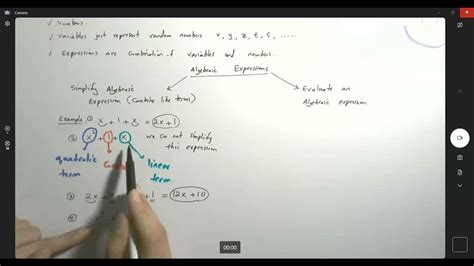 Camera
✓ Numbers.
✓ Variables just represent random numbers x, y, z, t, s, .....
✓ Expressions are combination of variables and numbers.
Algebraic Expressions
Simplify Algebraic
Expression (Combine like terms)
Evaluate an
Algebraic expression
Example ① x + 1 + x = 2x+1
② x + 1 + x we can not simplify
this expression
quadratic
term
linear
term
③ 2x + 1 = 12x + 10
④
00:00